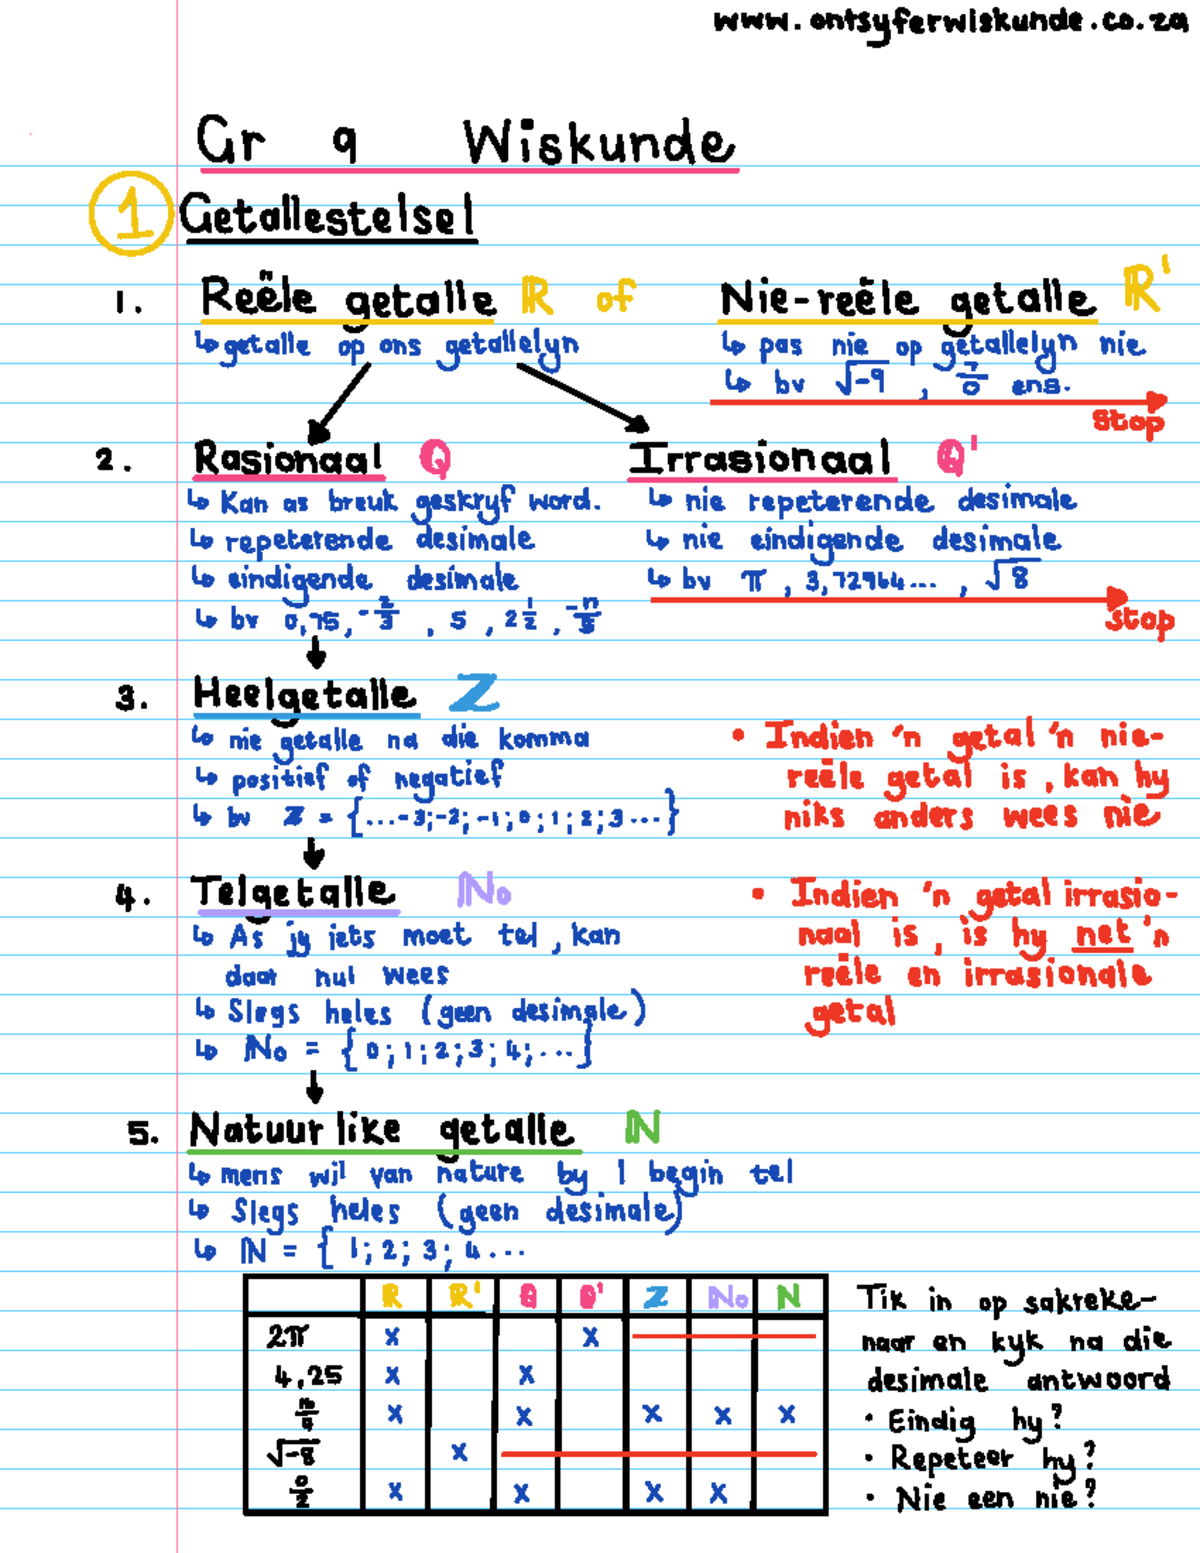 www.ontsyferwiskunde.co.za
Gr 9 Wiskunde
1 Getallestelsel
1. Reële getalle ℝ of Nie-reële getalle ℝ'
↳ getalle op ons getallelyn
↳ pas nie op getallelyn nie
↳ bv √-9 , 7/0 ens.
stop
2. Rasionaal ℚ Irrasionaal ℚ'
↳ Kan as breuk geskryf word.
↳ repeterende desimale
↳ eindigende desimale
↳ bv 0,75, -2/3 , 5 , 2 1/2 ,
↳ nie repeterende desimale
↳ nie eindigende desimale
↳ bv π , 3,72964... , √8
stop
3. Heelgetalle ℤ
↳ nie getalle na die komma
↳ positief of negatief
↳ bv ℤ = {...-3;-2;-1;0;1;2;3...}
• Indien 'n getal 'n nie-
reële getal is, kan hy
niks anders wees nie
4. Telgetalle ℕ₀
↳ As jy iets moet tel, kan
daar nul wees
↳ Slegs heles (geen desimale)
↳ ℕ₀ = {0;1;2;3;4;...}
• Indien 'n getal irrasio-
naal is, is hy net 'n
reële en irrasionale
getal
5. Natuurlike getalle ℕ
↳ mens wil van nature by 1 begin tel
↳ Slegs heles (geen desimale)
↳ ℕ = { 1; 2; 3; 4...
ℝ ℝ' ℚ ℚ' ℤ ℕ₀ ℕ
2π x x
4,25 x x
x x x x x
√-8 x
0/2 x x x x
Tik in op sakreke-
naar en kyk na die
desimale antwoord
• Eindig hy?
• Repeteer hy?
• Nie een nie?